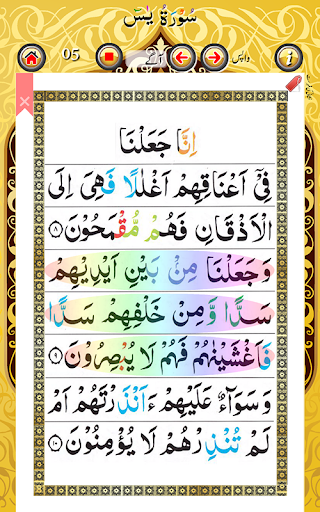 سُوْرَةُ يٰسٓ
05
واپس
i
اِنَّا جَعَلْنَا
فِیْۤ اَعْنَاقِهِمْ اَغْلٰلًا فَهِیَ اِلَی
الْاَذْقَانِ فَهُمْ مُّقْمَحُوْنَ ﴿۸﴾
وَجَعَلْنَا مِنْۢ بَیْنِ اَیْدِیْهِمْ
سَدًّا وَّمِنْ خَلْفِهِمْ سَدًّا
فَاَغْشَیْنٰهُمْ فَهُمْ لَا یُبْصِرُوْنَ ﴿۹﴾
وَسَوَآءٌ عَلَیْهِمْ ءَاَنْذَرْتَهُمْ اَمْ
لَمْ تُنْذِرْهُمْ لَا یُؤْمِنُوْنَ ﴿۱۰﴾